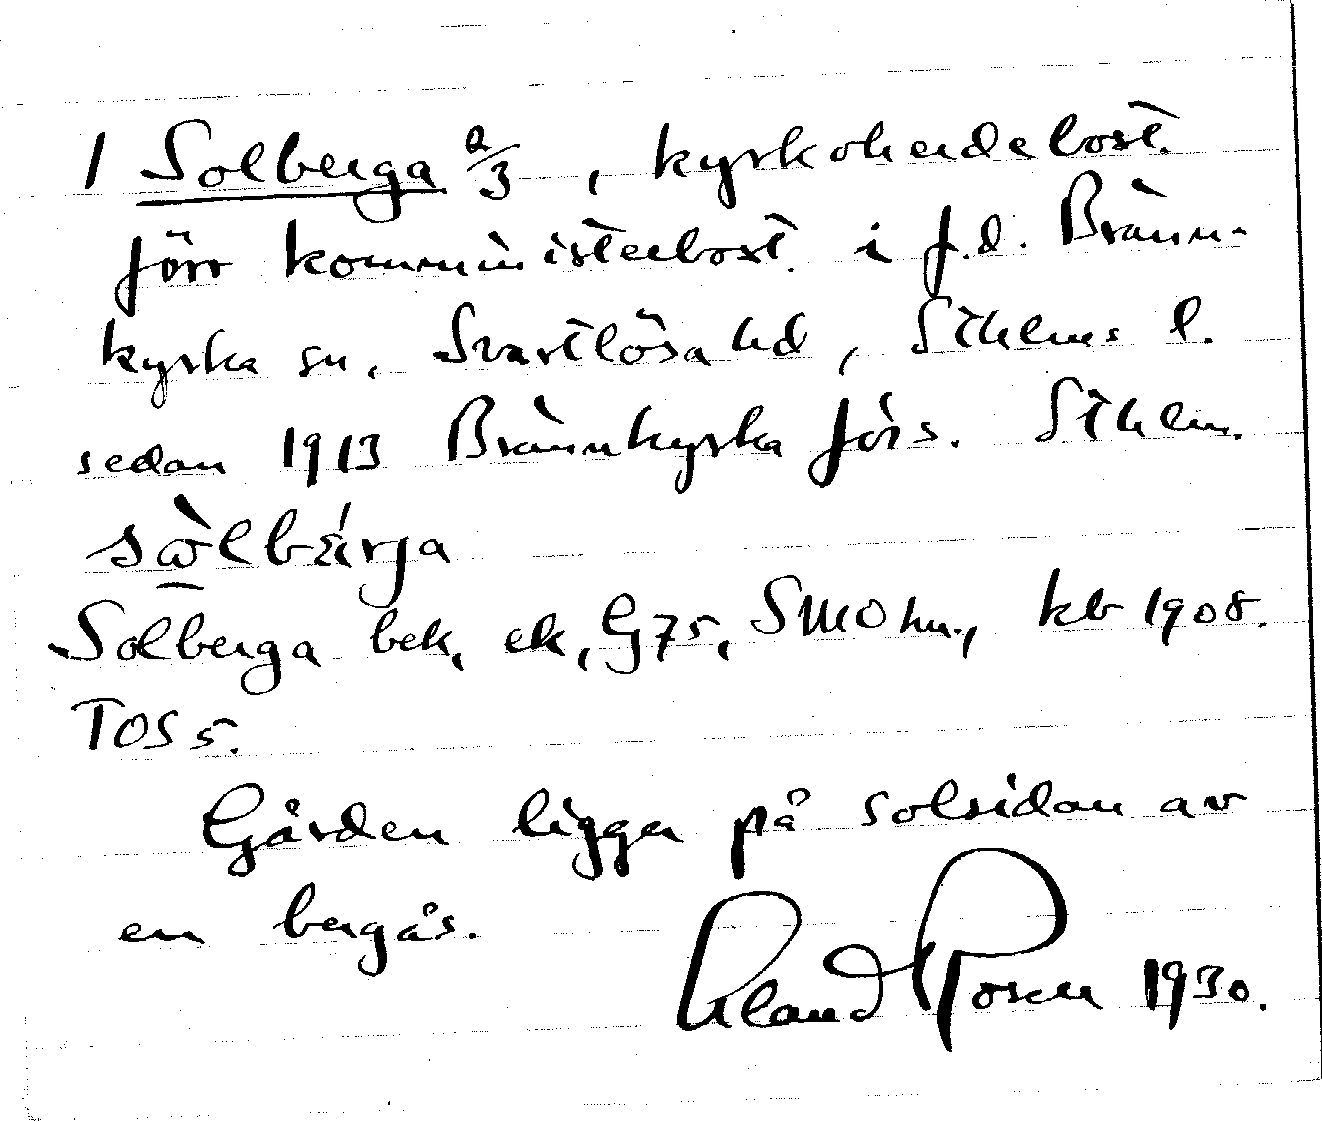 1 Solberga 2/3, kyrkoherdebost.
förr kommministerbost. i f.d. Bränn-
kyrka sn, Svartlösa hd, Sthlms l.
sedan 1913 Brännkyrka förs. Sthlm.
Solberga bek, ek, G75, SMOhn., kb 1908.
TOS 5.
Gården ligger på solsidan av
en bergås.
Rosen 1930.